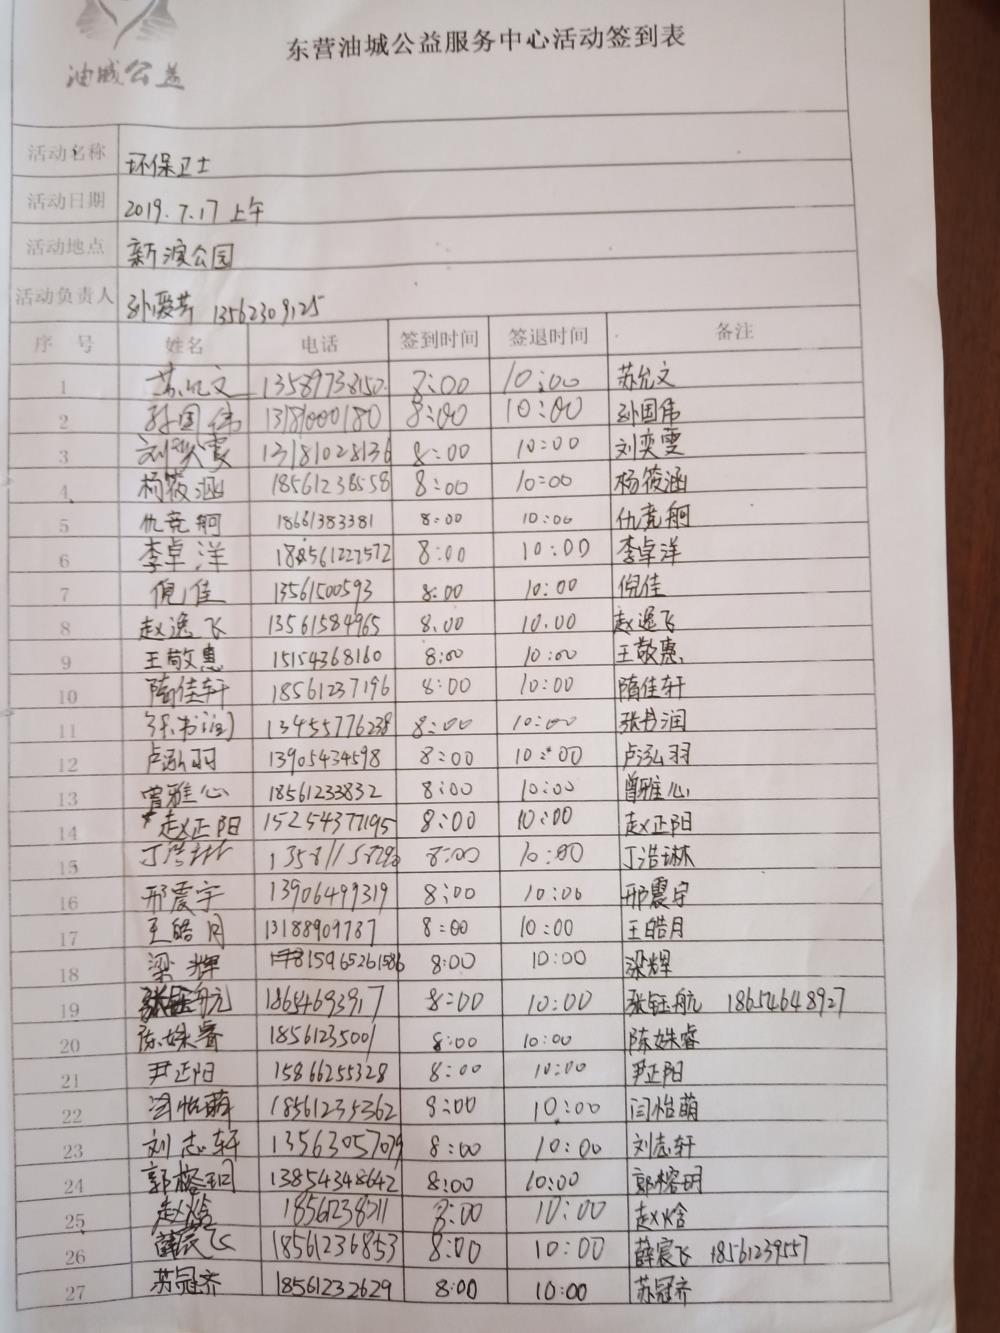 油城公益
东营油城公益服务中心活动签到表
活动名称 环保卫士
活动日期 2019.7.17 上午
活动地点 新滨公园
活动负责人 孙爱芳 13562309125
序 号 姓名 电话 签到时间 签退时间 备注
1 苏允文 13589738150 8:00 10:00 苏允文
2 孙国伟 13181000180 8:00 10:00 孙国伟
3 刘奕雯 13181028136 8:00 10:00 刘奕雯
4 杨筱涵 18561238558 8:00 10:00 杨筱涵
5 仇竞舸 18661383381 8:00 10:00 仇竞舸
6 李卓洋 188561227572 8:00 10:00 李卓洋
7 倪佳 13561500593 8:00 10:00 倪佳
8 赵逸飞 13561584965 8:00 10:00 赵逸飞
9 王敬惠 15154368160 8:00 10:00 王敬惠
10 隋佳轩 18561237196 8:00 10:00 隋佳轩
11 张书润 13455776238 8:00 10:00 张书润
12 卢泓羽 13905434598 8:00 10:00 卢泓羽
13 曾雅心 18561233832 8:00 10:00 曾雅心
14 赵正阳 15254377195 8:00 10:00 赵正阳
15 丁浩琳 8:00 10:00 丁浩琳
16 邢震宇 13906499319 8:00 10:00 邢震宇
17 王皓月 13188909737 8:00 10:00 王皓月
18 梁辉 15965261586 8:00 10:00 梁辉
19 张钰航 18654693917 8:00 10:00 张钰航 18654648927
20 陈姝睿 18561235001 8:00 10:00 陈姝睿
21 尹正阳 15866255328 8:00 10:00 尹正阳
22 闫怡萌 18561235362 8:00 10:00 闫怡萌
23 刘志轩 13563057079 8:00 10:00 刘志轩
24 郭榕玥 13854348642 8:00 10:00 郭榕玥
25 赵焓 18561238011 8:00 10:00 赵焓
26 薛宸飞 18561236853 8:00 10:00 薛宸飞 18561239557
27 苏冠齐 18561232629 8:00 10:00 苏冠齐